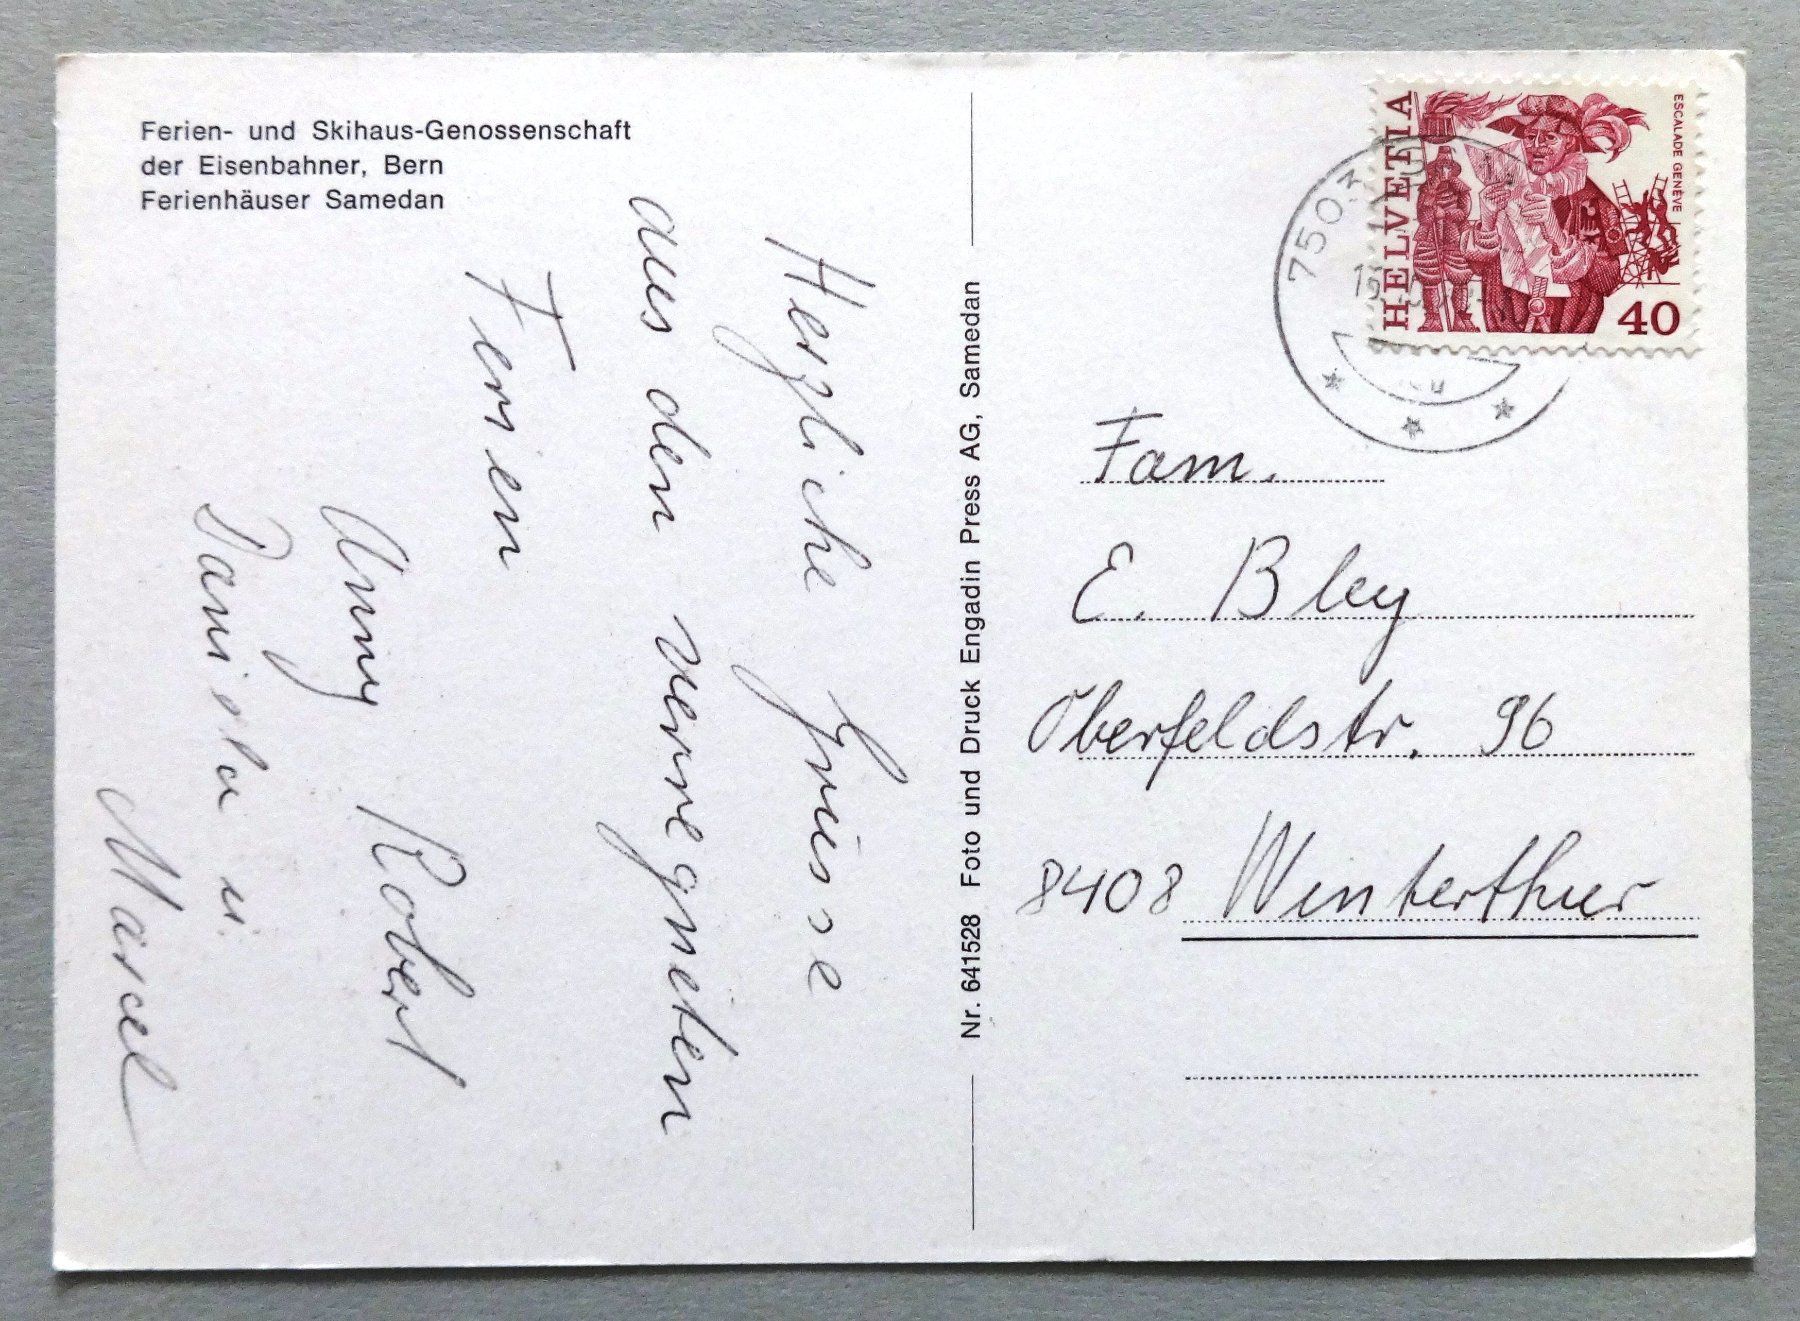 Ferien- und Skihaus-Genossenschaft
der Eisenbahner, Bern
Ferienhäuser Samedan
Herzliche Grüsse
aus den verregneten
Ferien
Anny Robert
Daniela u.
Marcel
Nr. 641528 Foto und Druck Engadin Press AG, Samedan
HELVETIA
ESCALADE GENÈVE
40
7503
Fam.
E. Bley
Oberfeldstr. 96
8408 Winterthur